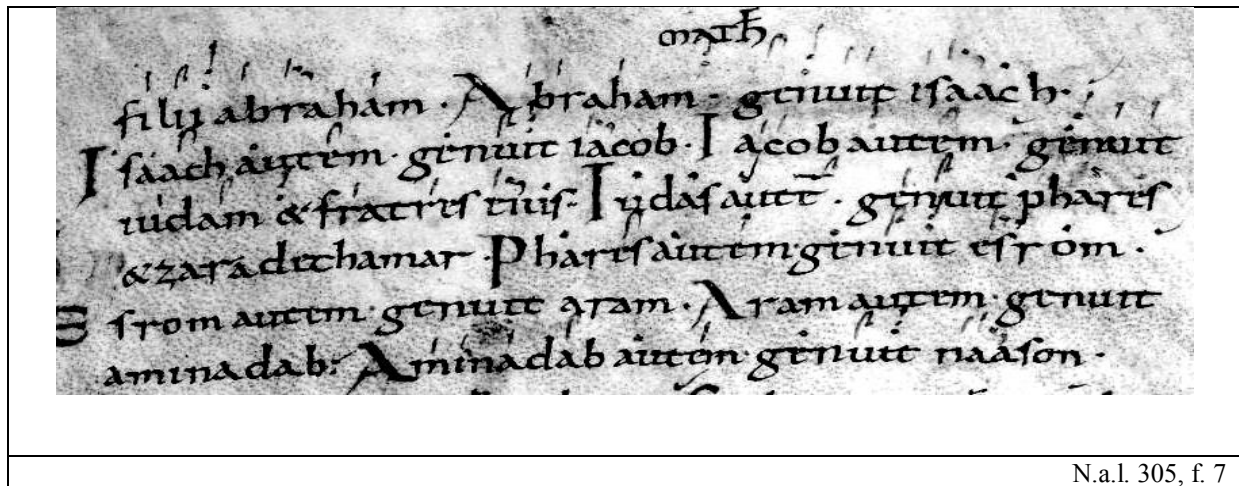 math
filii abraham. Abraham. genuit isaach.
Isaach autem. genuit iacob. Iacob autem. genuit
iudam & fratres eius. Iudas aute̅. genuit phares
& zara de thamar. Phares autem. genuit esrom.
Esrom autem. genuit aram. Aram autem. genuit
aminadab. Aminadab autem. genuit naason.
N.a.l. 305, f. 7